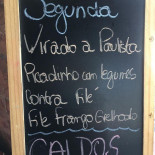 Segunda
Virado a Paulista
Picadinho com legumes
Contra filé
File frango Grelhado
CALDOS